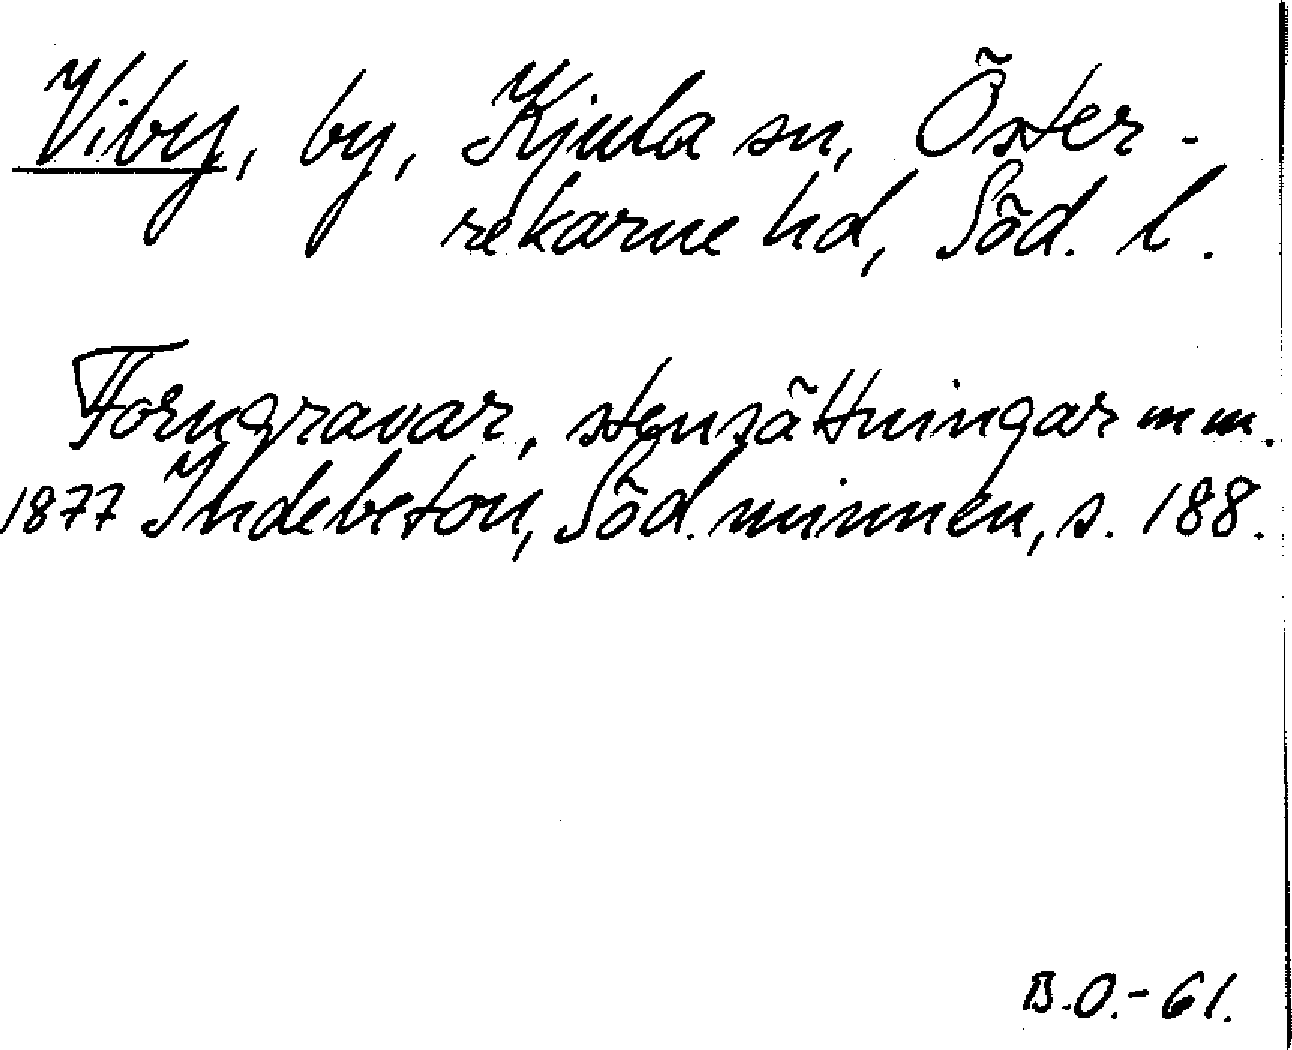 Viby, by, Kjula sn, Öster-
rekarne hd, Söd. l.
Forngravar, stensättningar m m.
1877 Indebetou, Söd. minnen, s. 188.
B.O.-61.